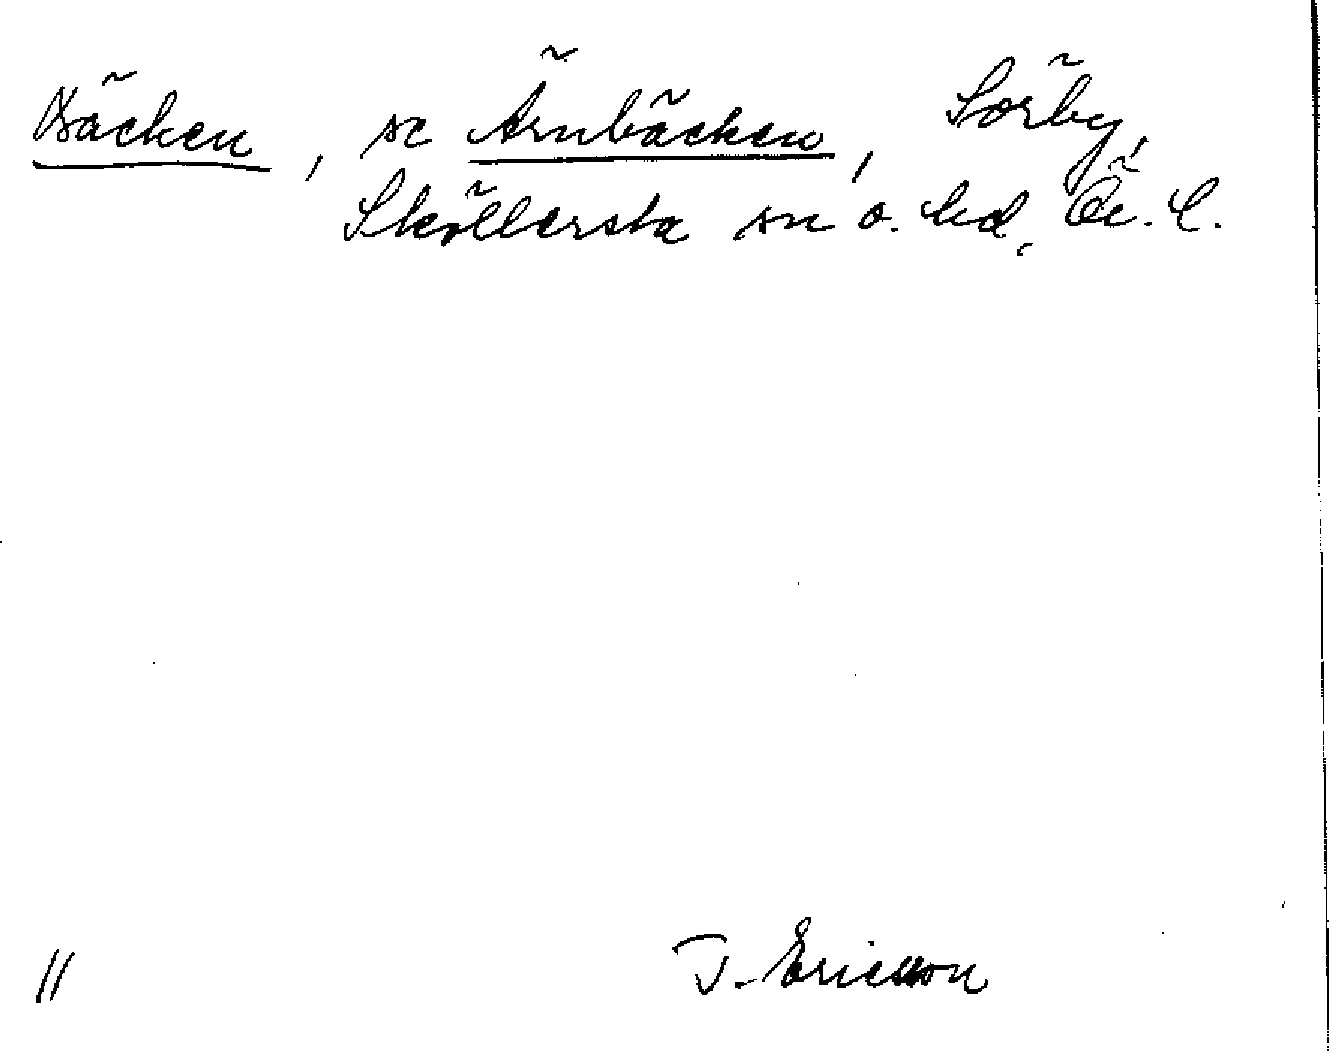 Bäcken, se Ärnbäcken, Sörby,
Sköllersta sn o. hd, Ör. l.
11 J. Ericsson